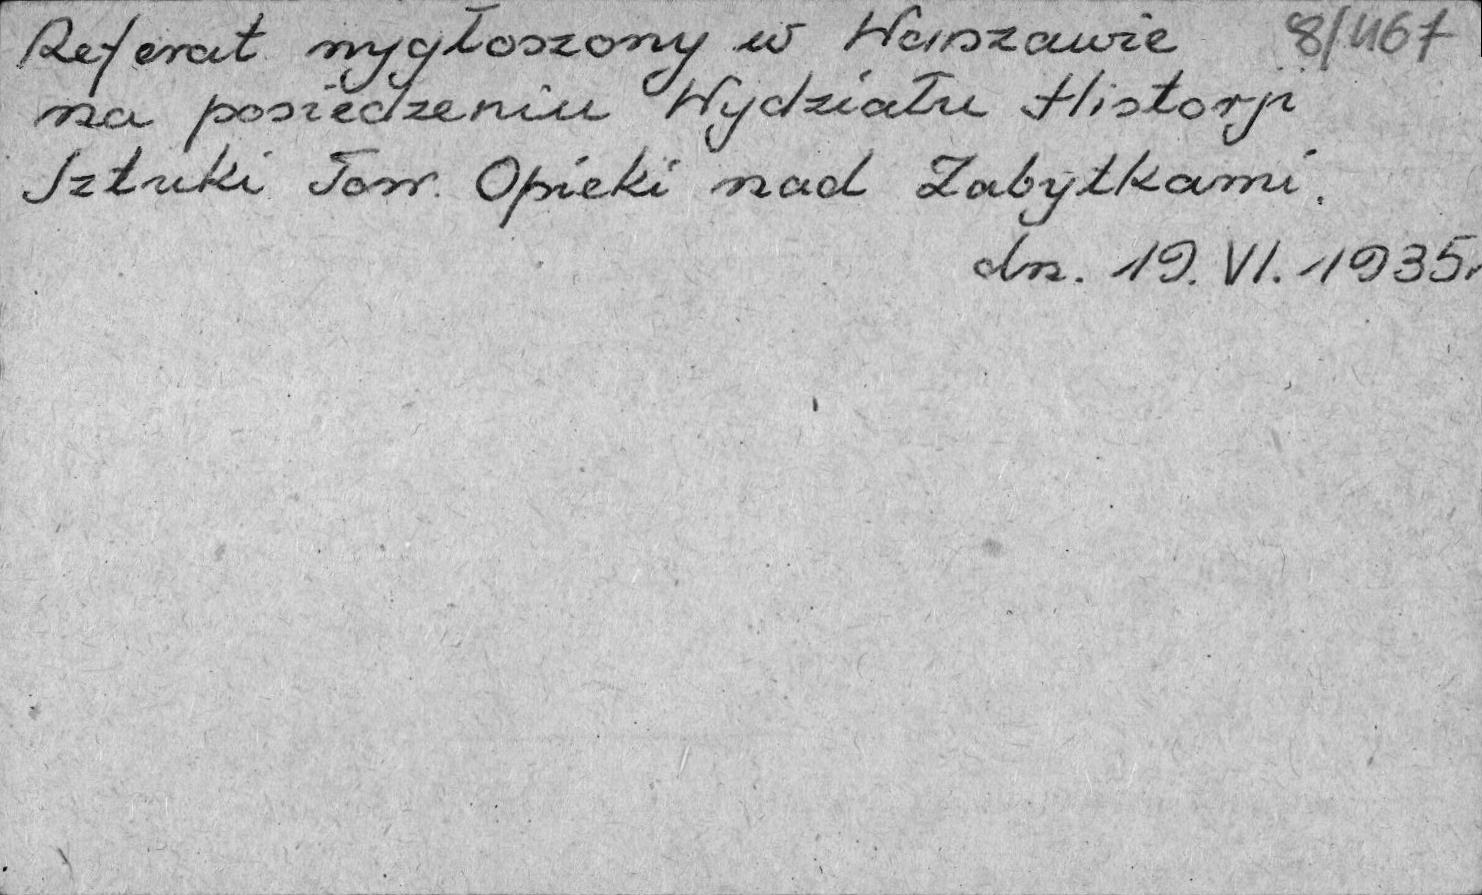 Referat wygłoszony w Warszawie 8/4167
na posiedzeniu Wydziału Historji
Sztuki Tow. Opieki nad Zabytkami.
dn. 19. VI. 1935r